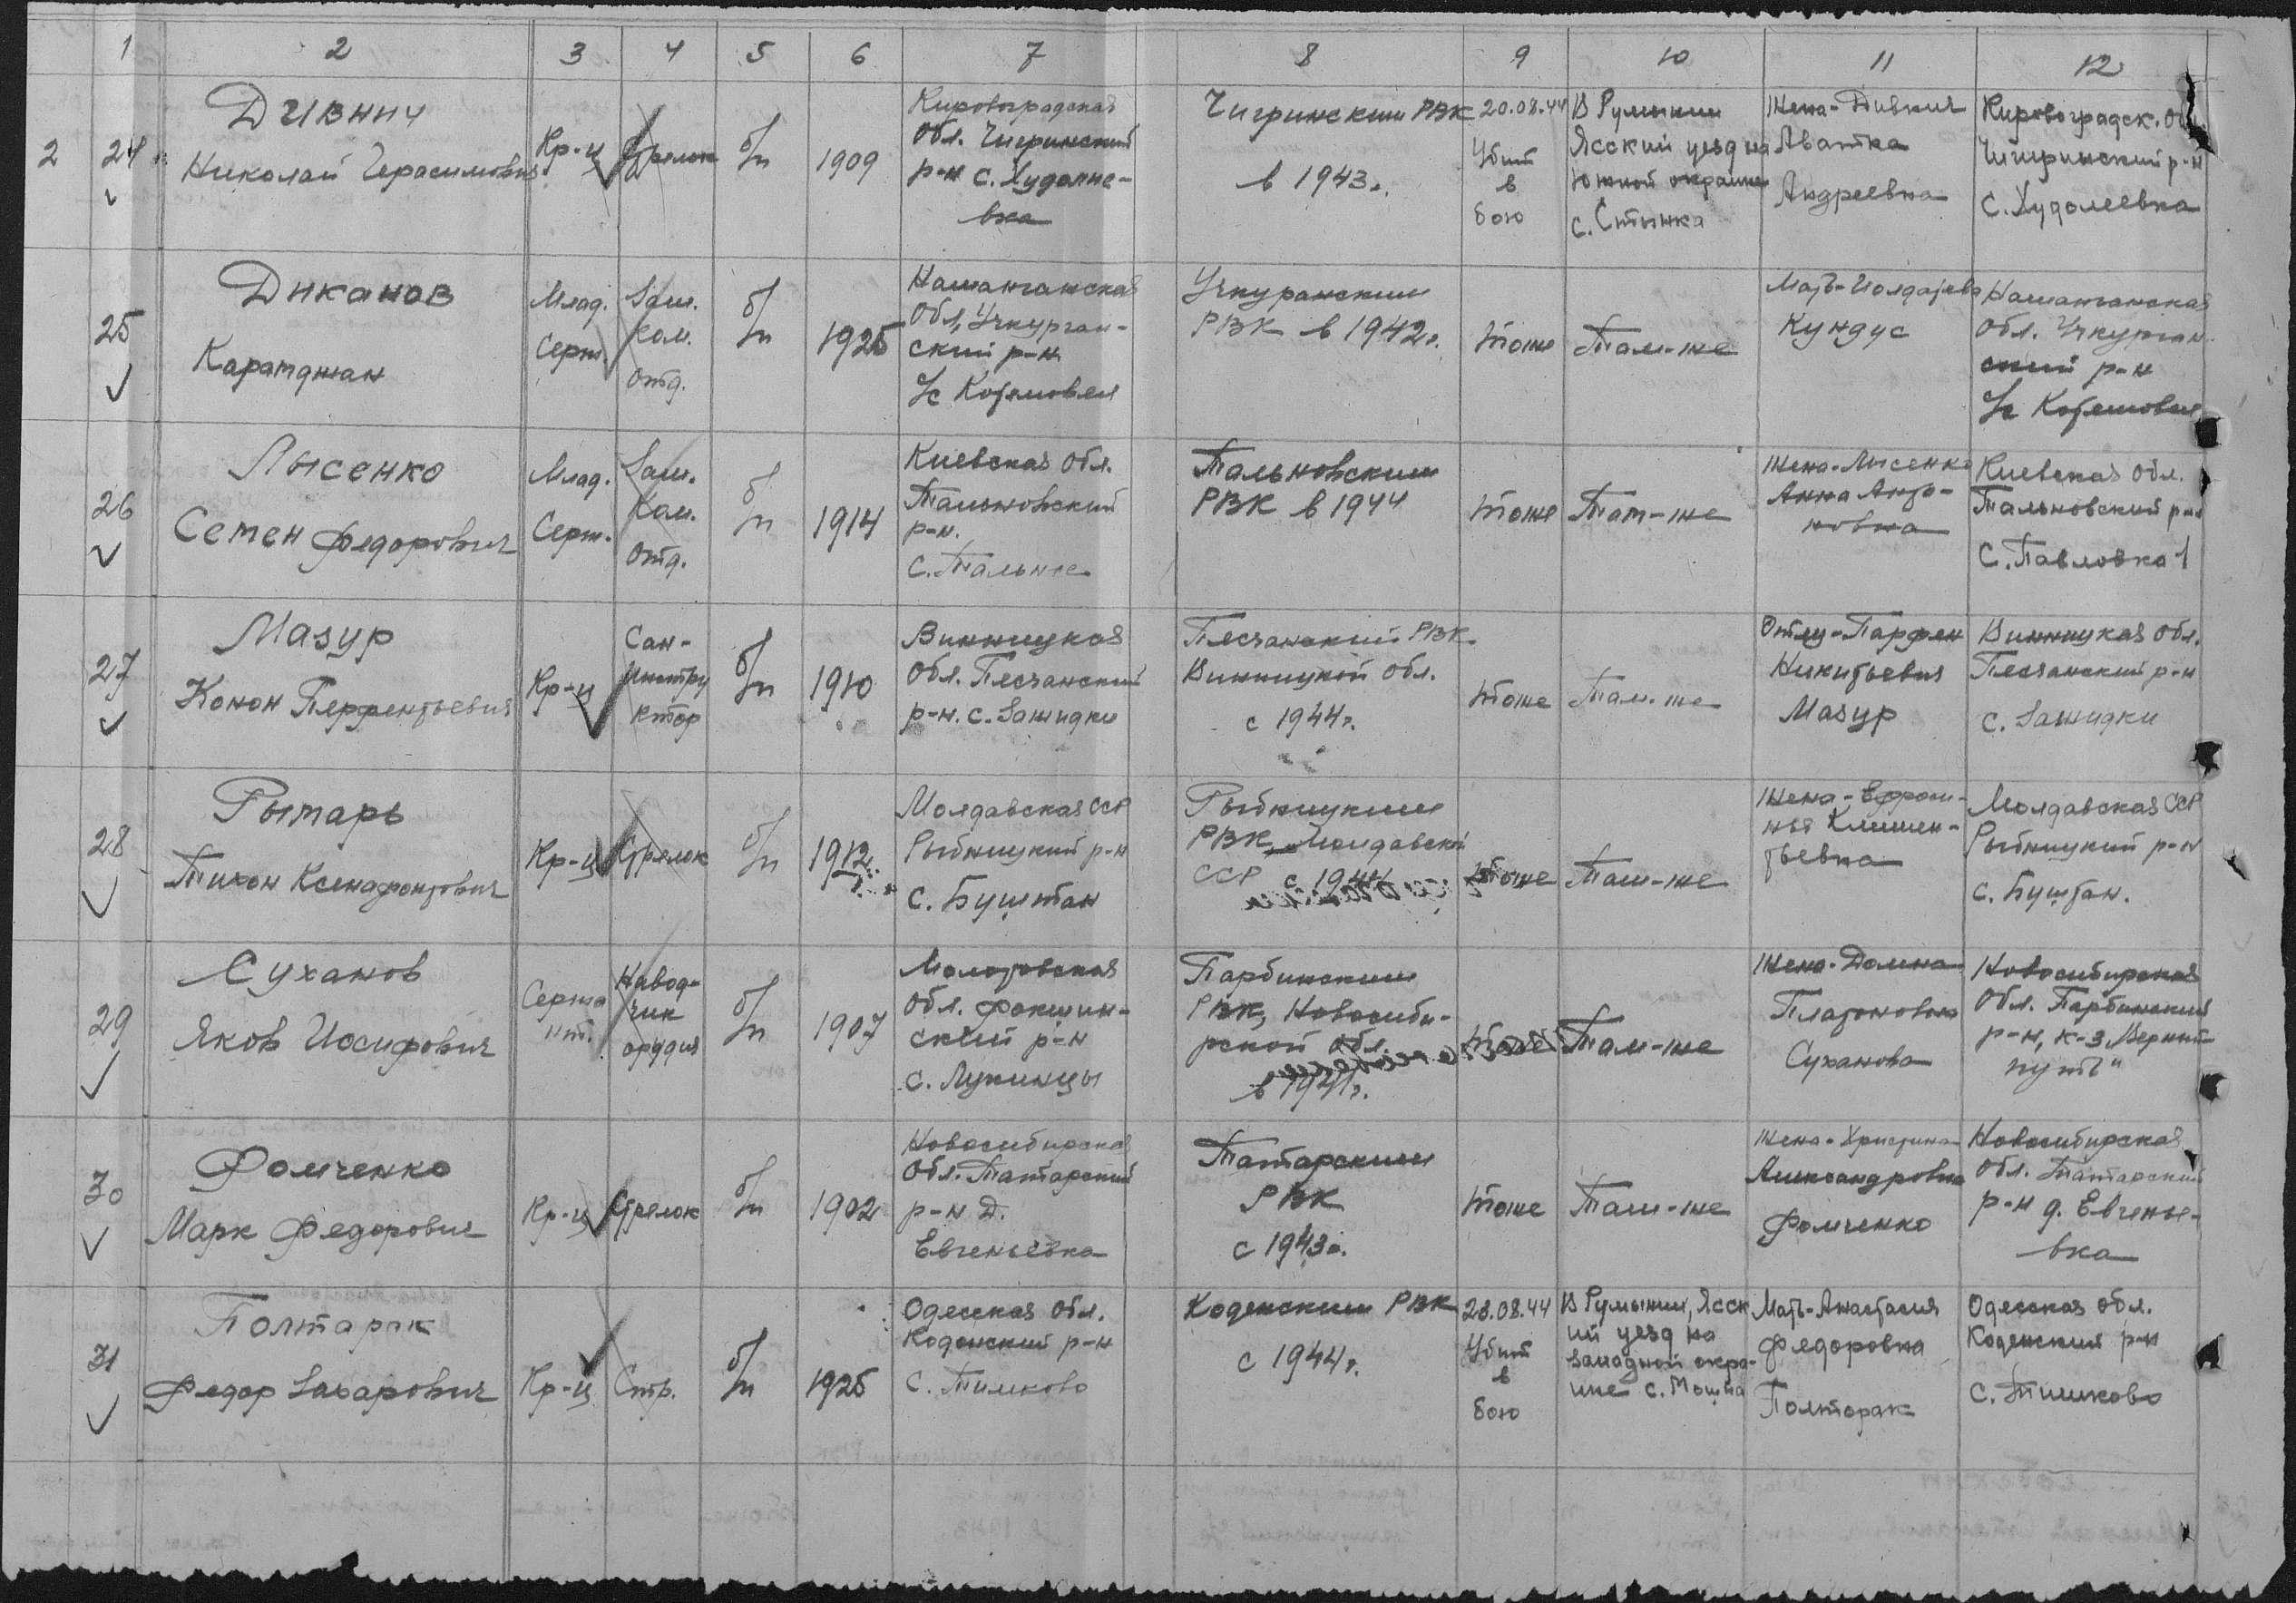 1 2 3 4 5 6 7 8 9 10 11 12
2 24
Дивнич
Николай Герасимович
Кр-ц
Стрелок
б/п
1909
Кировоградская
Обл. Чигринский
р-н с. Худолие-
вка
Чигринским РВК
в 1943г.
20.08.44
Убит
в
бою
В Румынии
Ясский уезд на
южной окраине
с. Стынка
Жена-Дивнич
Андреевна
Кировоградск. Обл.
Чигиринский р-н
с. Худолеевка
25
Диканов
Караmджан
Млад.
Серж.
Зам.
Ком.
отд.
б/п
1925
Наманганская
Обл, Учкурган-
ский р-н
Учкуранским
РВК в 1942г.
тоже
Там-же
Мать-
Кундус
Наманганская
Обл. Учкурган
ский р-н
26
Лысенко
Семен Федорович
Млад.
Серж.
Зам.
Ком.
отд.
б/п
1914
Киевская обл.
Тальновский
р-н.
с. Тальное
Тальновским
РВК в 1944
тоже
Там-же
Жена-Лисенко
Анна Анто-
новна
Киевская обл.
Тальновский р-н
С. Павловка 1
27
Мазур
Конон Перфентьевич
Кр-ц
Сан-
инстру
ктор
б/п
1910
Винницкая
обл. Песчанский
р-н. с. Зажидки
Песчанский РВК
Винницкой обл.
с 1944г.
тоже
Там-же
Отец-Парфен
Никитьевич
Мазур
Винницкая обл.
Песчанский р-н
с. Зажидки
28
Рытарь
Тихон Ксенофонтович
Кр-ц
Стрелок
б/п
1912
Молдавская ССР
Рыбницкий р-н
с. Буштан
Рыбницким
РВК Молдавской
ССР с 1944
тоже
Там-же
Жена-Ефроси-
нья Климен-
тьевна
Молдавская ССР
Рыбницкий р-н
с. Буштан.
29
Суханов
Яков Иосифович
Сержа
нт.
Навод-
чик
орудия
б/п
1907
Молотовская
обл. Фокшин-
ский р-н
с. Лукинцы
Парбинским
РВК, Новосиби-
рской обл.
в 1941г.
тоже
Там-же
Жена-Домна
Платоновна
Суханова
Новосибирская
Обл. Парбинский
р-н, к-з "Верный
путь"
30
Фомченко
Марк Федорович
Кр-ц
Стрелок
б/п
1902
Новосибирская
Обл. Татарский
р-н д.
Евгеньевка
Татарским
РВК
с 1943г.
тоже
Там-же
Жена-Христина
Александровна
Фомченко
Новосибирская
обл. Татарский
р-н д. Евгенье-
вка
31
Полтарак
Федор Захарович
Кр-ц
Стр.
б/п
1925
Одесская обл.
Коденский р-н
с. Тимково
Коденским РВК
с 1944г.
23.08.44
Убит
в
бою
В Румынии, Ясск
ий уезд на
западной окра-
ине с. Мошна
Мать-Анастасия
Федоровна
Полторак
Одесская обл.
Коденский р-н
с. Тимково